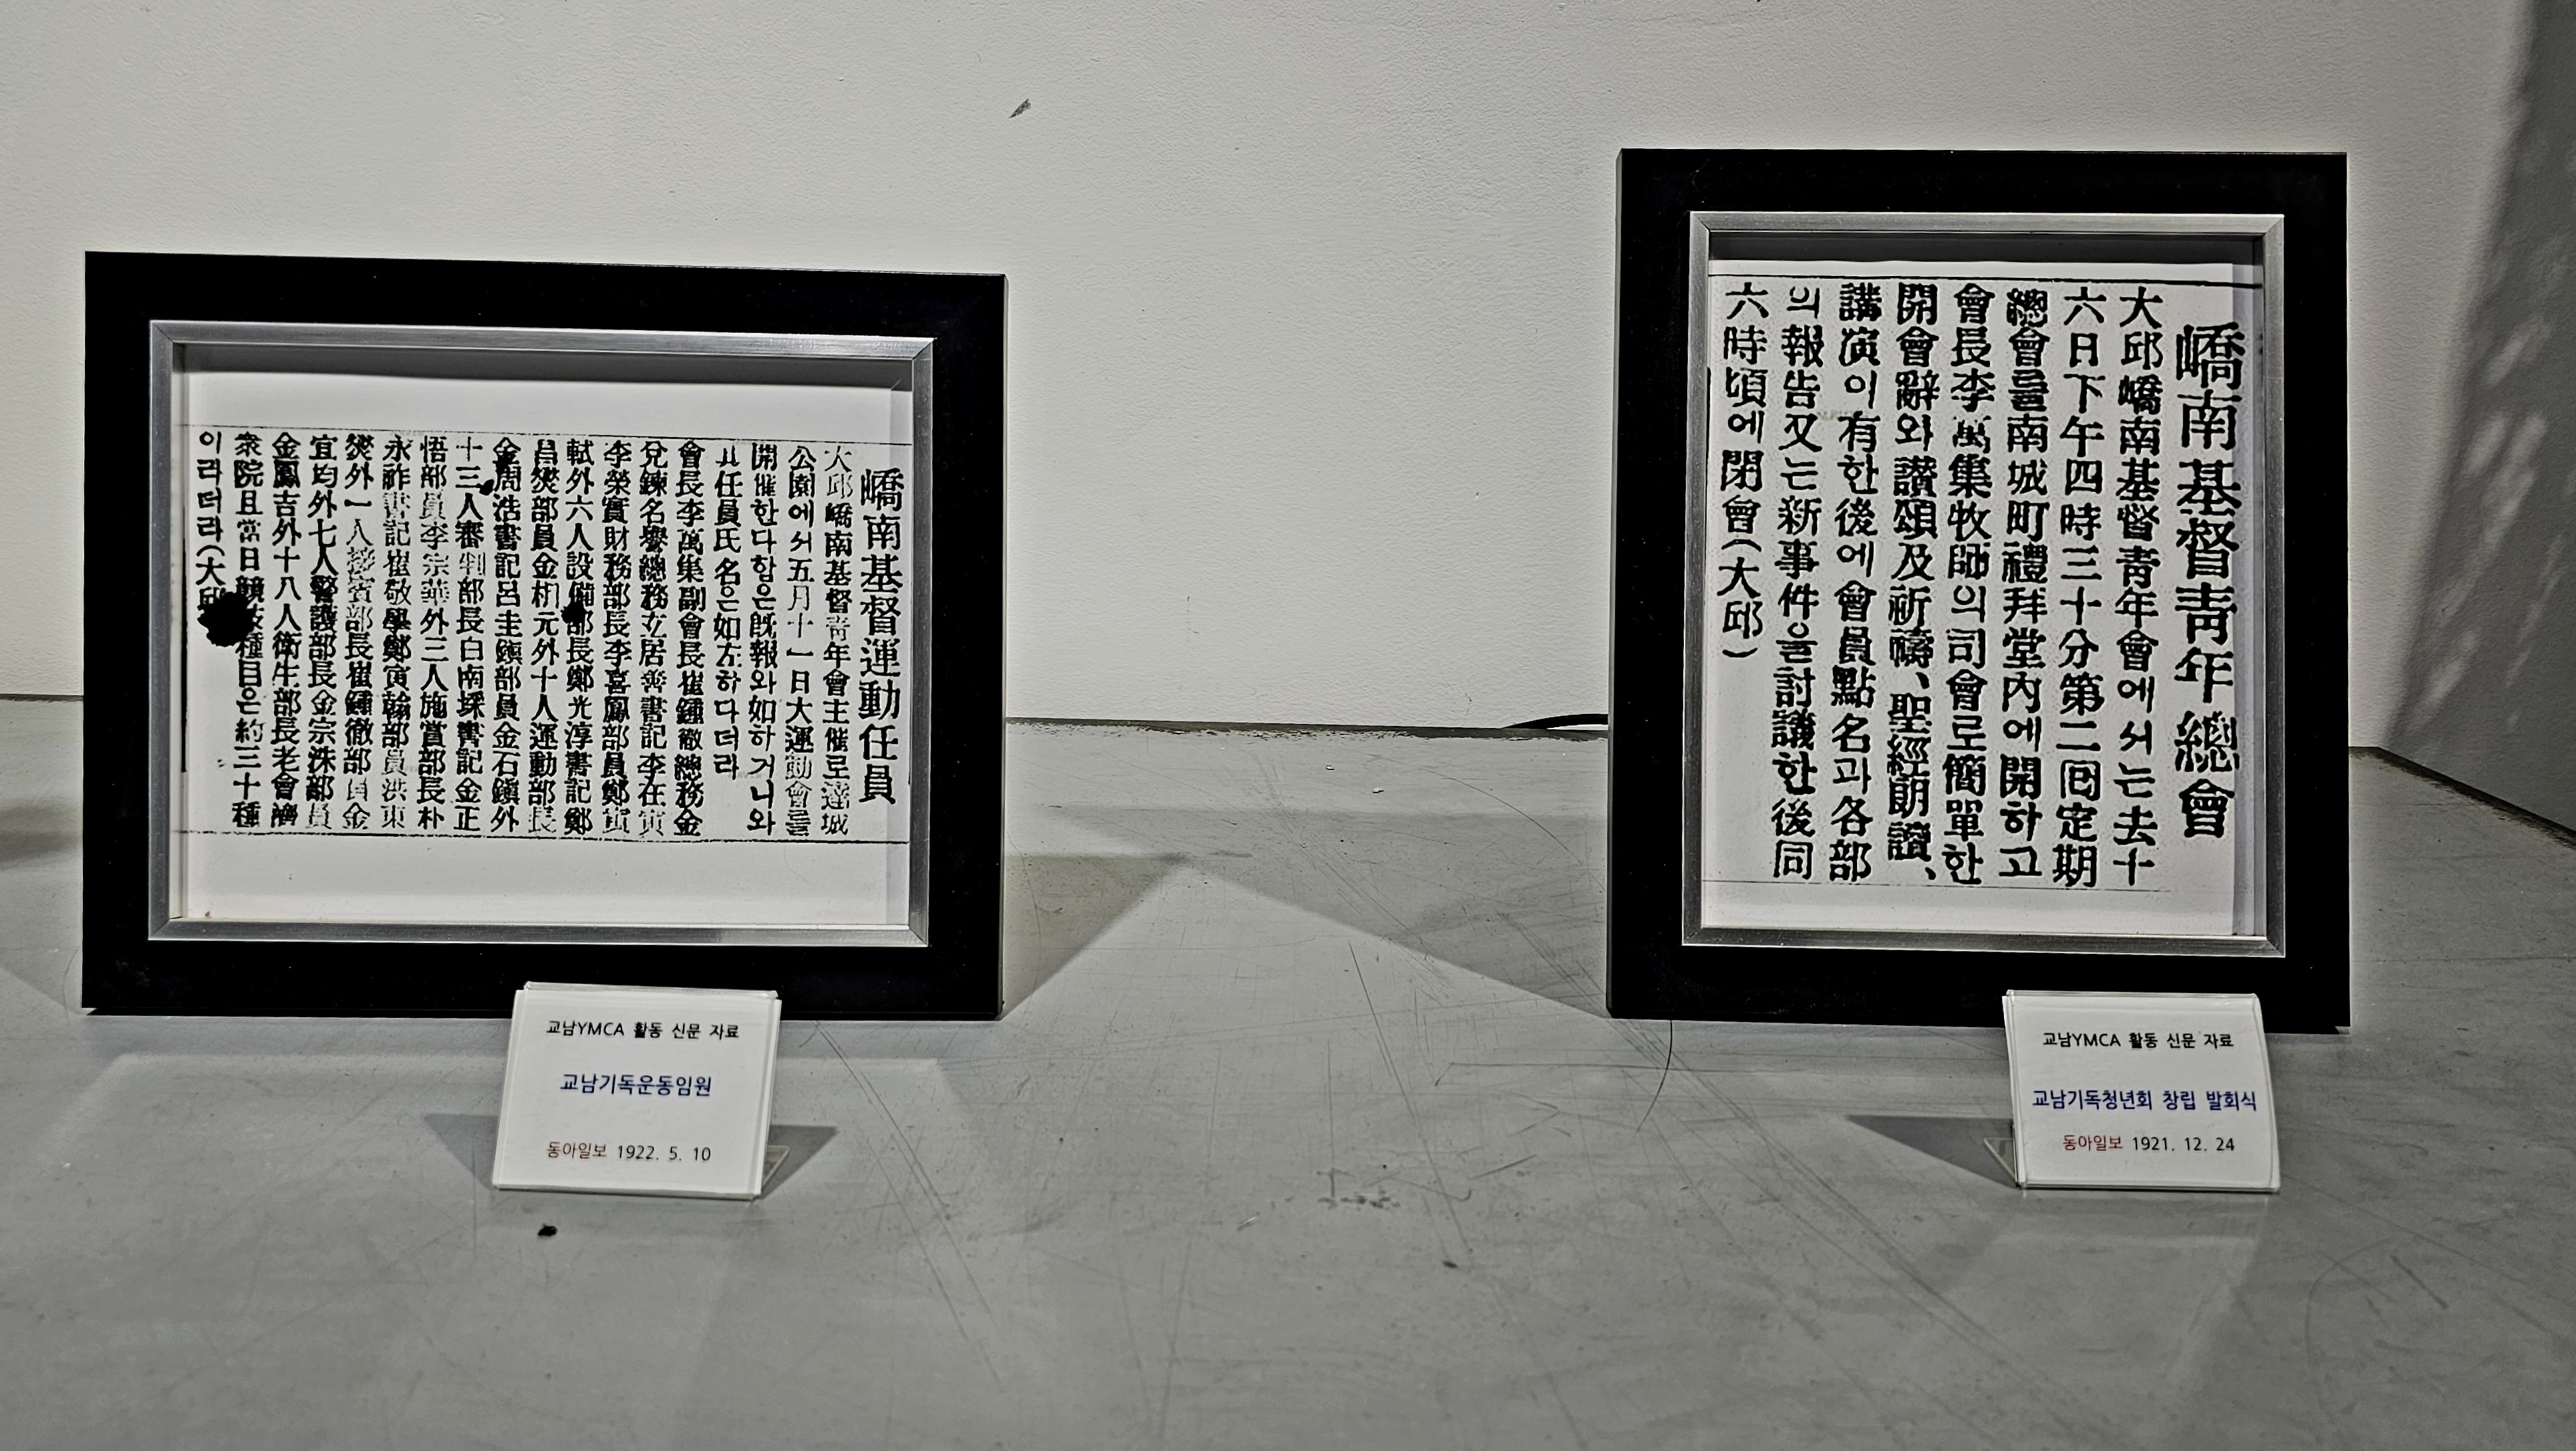 嶠南基督運動任員
大邱嶠南基督靑年會主催로達城
公園에서五月十一日大運動會를
開催한다함은旣報와如하거니와
其任員氏名은如左하다더라
會長李萬集副會長崔鍾徹總務金
兌鍊名譽總務立居善書記李在寅
李榮實財務部長李喜鳳部員鄭寅
軾外六人設備部長鄭光淳書記鄭
昌燮部員金 元外十人運動部長
金周浩書記呂圭鎭部員金石鎭外
十三人審判部長白南埰書記金正
悟部員李宗華外三人施賞部長朴
永祚書記崔敬學鄭寅翰部員洪東
燮外一人接賓部長崔鍾徹部員金
宜均外七人警護部長金宗洙部員
金鳳吉外十八人衛生部長老會濟
衆院且當日競技種目은約三十種
이라더라(大邱
교남YMCA 활동 신문 자료
교남기독운동임원
동아일보 1922. 5. 10
嶠南基督靑年總會
大邱嶠南基督靑年會에서는去十
六日下午四時三十分第二回定期
總會를南城町禮拜堂內에開하고
會長李萬集牧師의司會로簡單한
開會辭와讚頌及祈禱、聖經朗讀、
講演이有한後에會員點名과各部
의報告又는新事件을討議한後同
六時頃에閉會(大邱)
교남YMCA 활동 신문 자료
교남기독청년회 창립 발회식
동아일보 1921. 12. 24